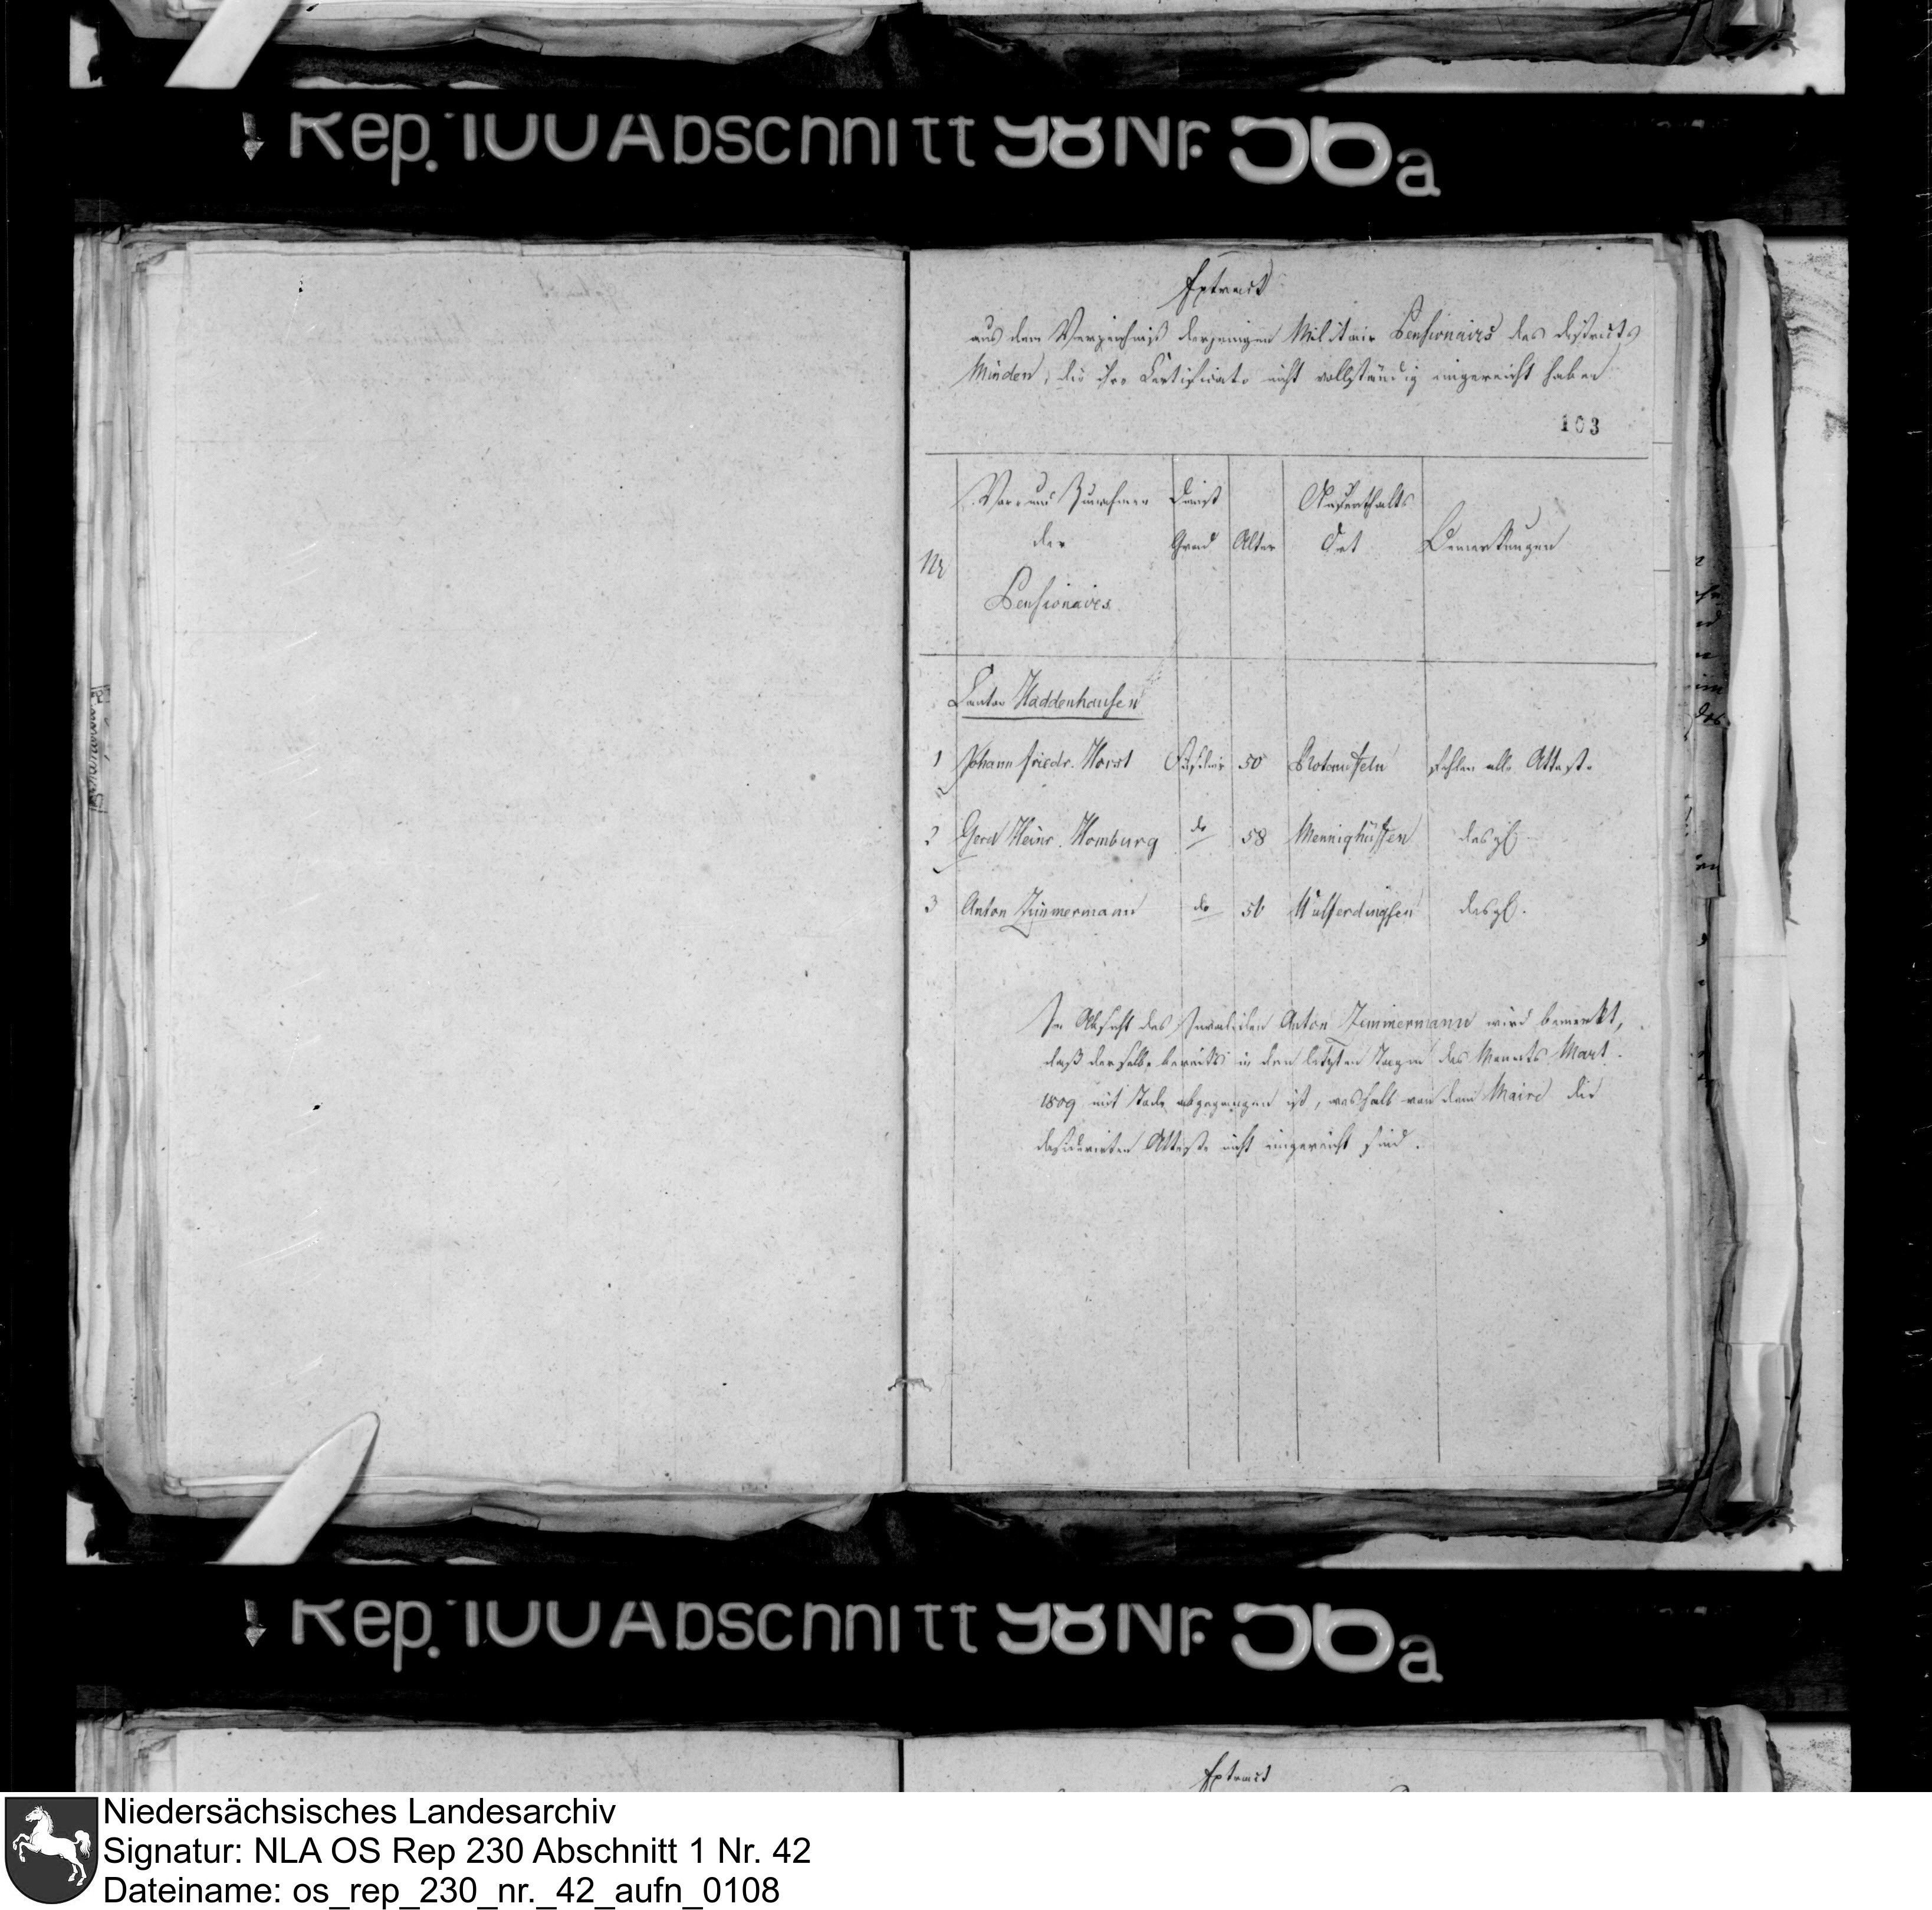 Rep. 100 Abschnitt 98 Nr. 56a
Extract
aus dem Verzeichniß derjenigen Militair Pensionairs des Districts
Minden, die ihre Certificate nicht vollständig eingereicht haben
103
Nr
Vor- und Zunahmen der Pensionairs
Dienst Grad
Alter
Aufenthalts Ort
Bemerkungen
Canton Haddenhausen
1 Johann Friedr. Horst Füselier 50 fehlen alle Atteste
2 Gerd Heinr. Homburg do 58 Mennighüffen desgl
3 Anton Zimmermann do Wulferdingsen desgl.
In Absicht des Invaliden Anton Zimmermann wird bemerkt,
daß derselbe bereits in den letzten Tagen des Monats Mart
1809 mit Tode abgegangen ist, weshalb von dem Maire die
desiderirten Atteste nicht eingereicht sind.
Rep. 100 Abschnitt 98 Nr. 56a
Extract
Niedersächsisches Landesarchiv
Signatur: NLA OS Rep 230 Abschnitt 1 Nr. 42
Dateiname: os_rep_230_nr._42_aufn_0108